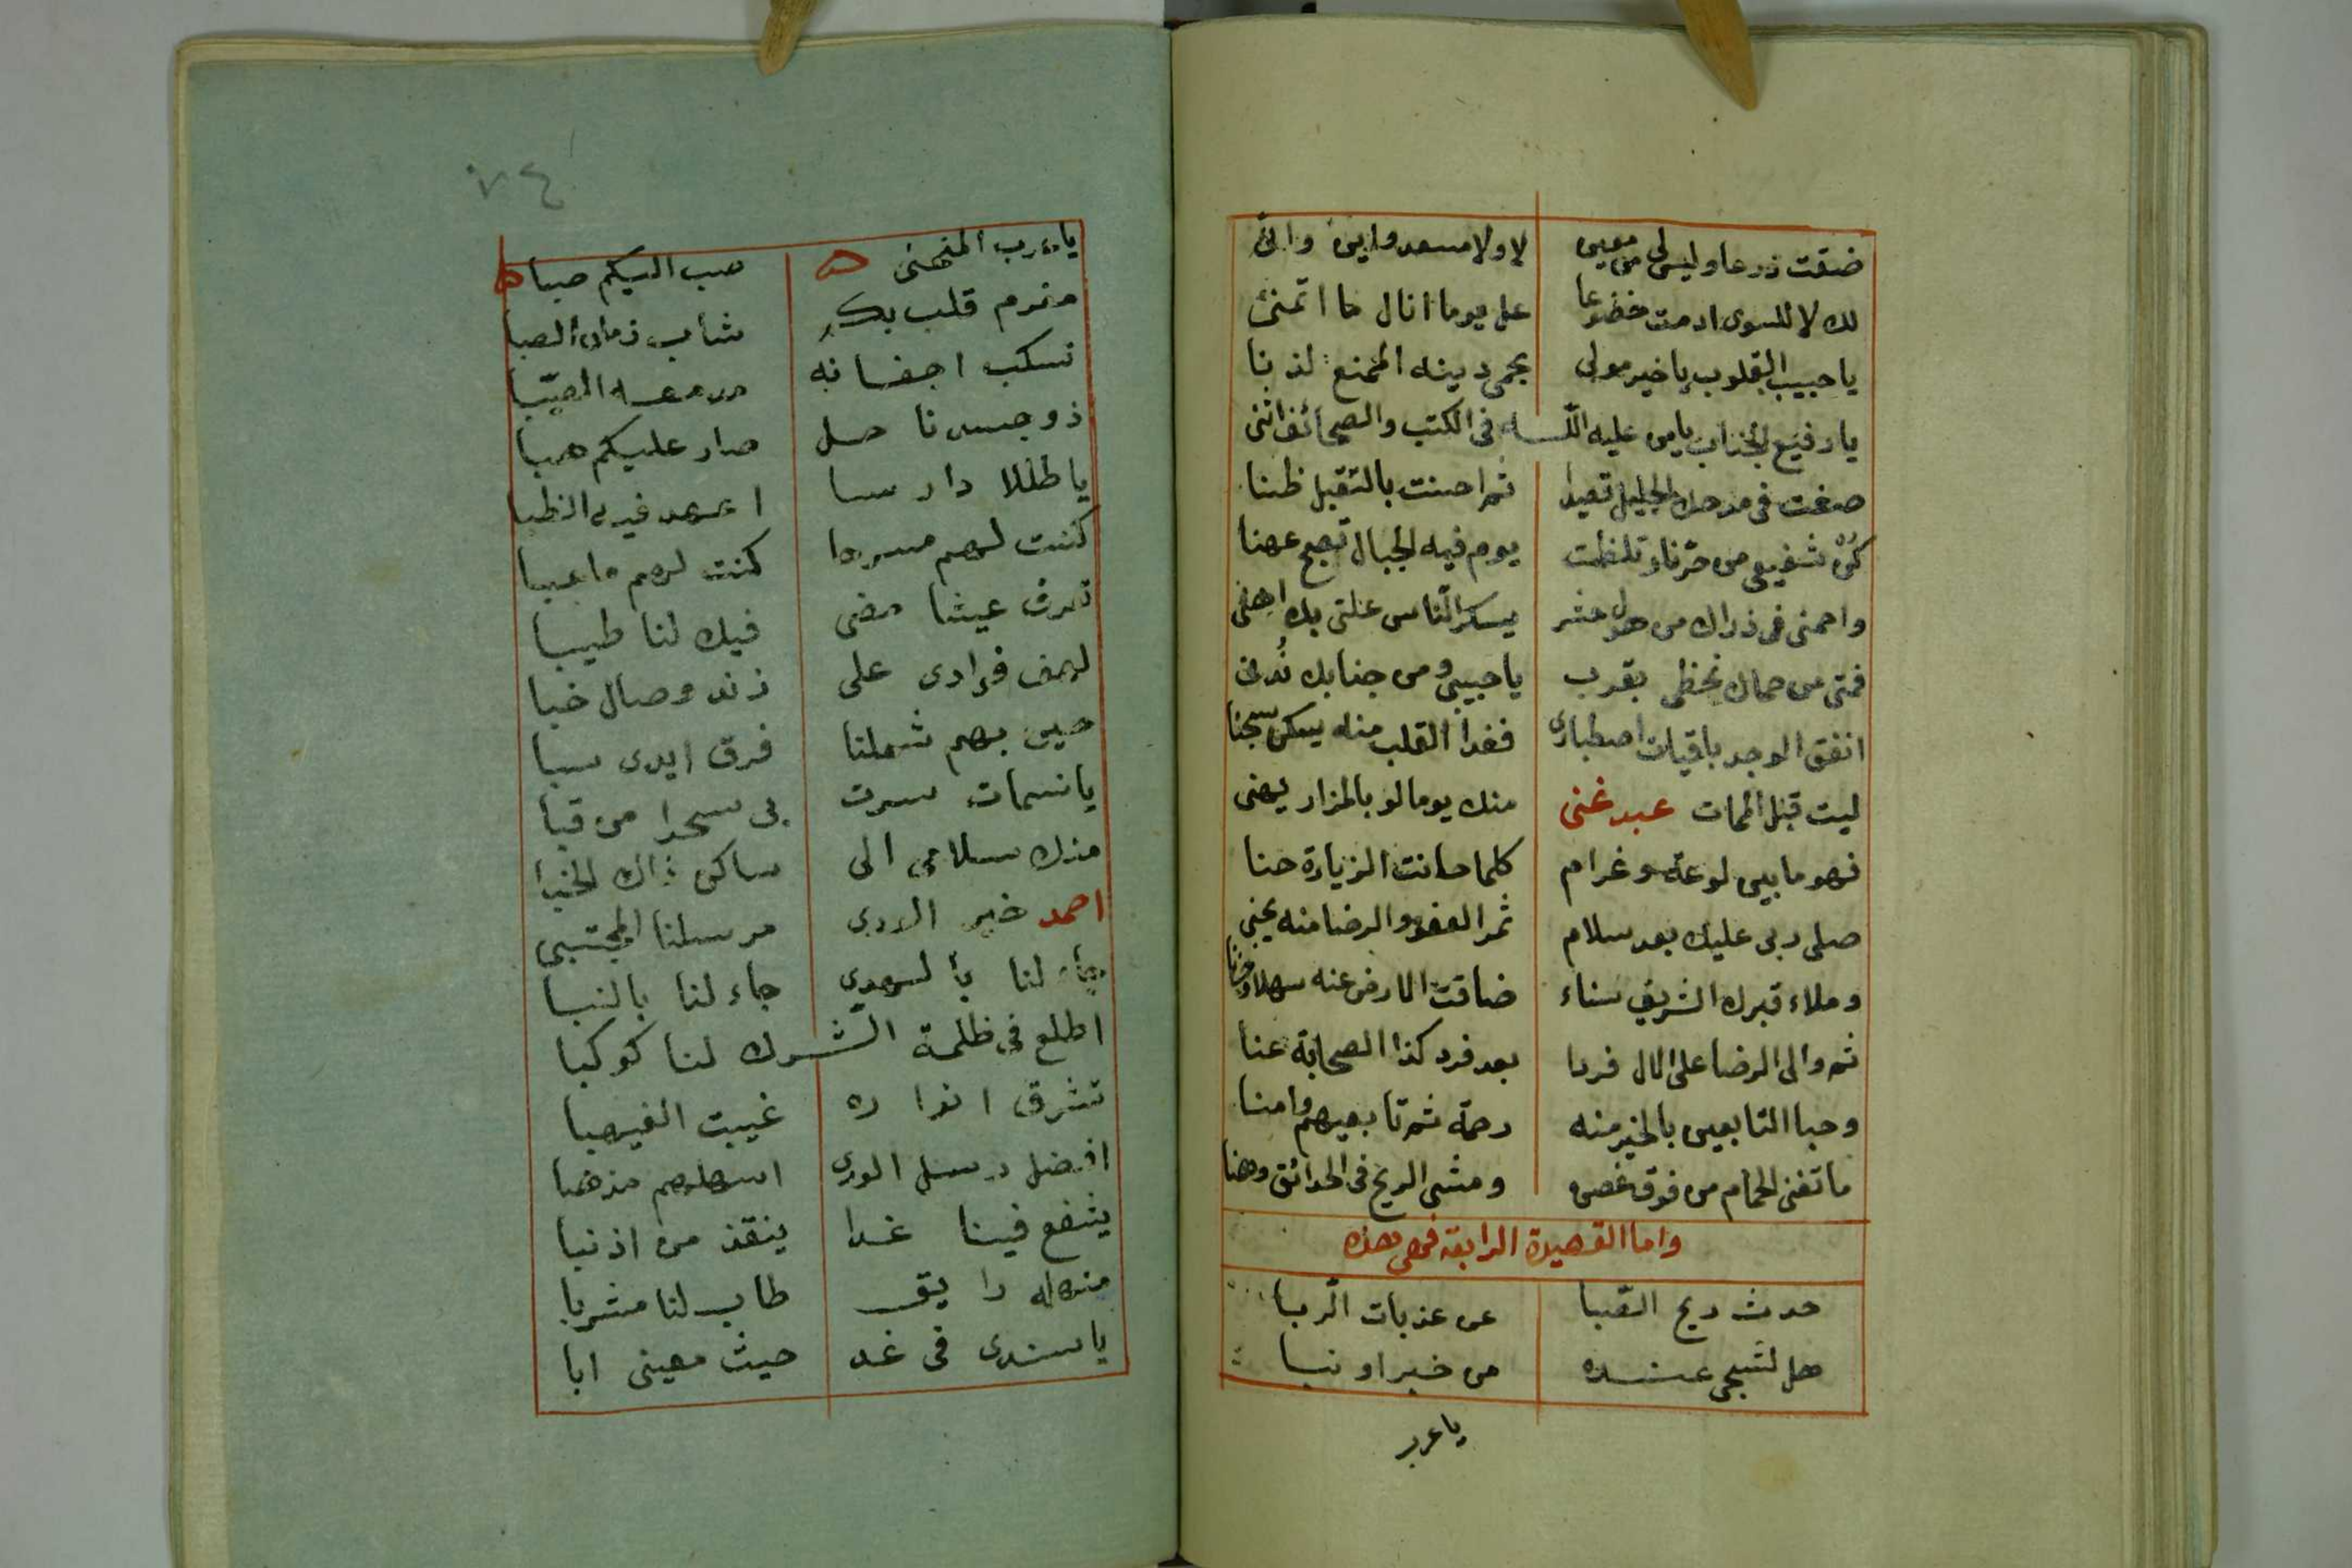 ضقت ذرعا وليس لى من معين لا ولا مسعد واين وانى
لك لا للسوى ادمت خضوعا عل يوما انال ما اتمنى
يا حبيب القلوب يا خير مولى بحمى دينه الممنع لذنا
يا رفيع الجناب يا من عليه اللـه فى الكتب والصحائف اثنى
صغت فى مدحك الجليل ثم احسنت بالتقبل ظنا
كن شفيعى من حر نار تلظت يوم فيه الجبال تصبح عهنا
واحمنى فى ذراك من هول حشر يسكر الناس علتى بك
فمتى من حماك نحظى بقرب يا حبيبى ومن جنابك ندنى
انفق الوجد باقيات اصطبارى فغدا القلب منه يسكن سجنا
ليت قبل الممات عبد غنى منك يوما لو بالمزار يهنى
فهو ما بين لوعة وغرام كلما حانت الزيارة حنا
صلى ربى عليك بعد سلام ثمر العفو والرضا منه يجنى
وملاء قبرك الشريف سناء ضاقت الارض عنه سهلا وحزنا
ثم والى الرضا على الال فردا بعد فرد كذا الصحابة عنا
وحبا التابعين بالخير منه رحمة ثم تابعيهم وامنا
ما تغنى الحمام من فوق غصن ومشى الريح فى الحدائق وهنا
واما القصيدة الرابعة فهى هذه
حدث ريح الصبا عن عذبات الربا
هل لشجى عنده من خبر او نبا
يا عرب
٧٤
يا عرب المنحنى صب اليكم صبا
مغرم قلب بكم شاب زمان الصبا
تسكب اجفانه من دمعه الصيبا
ذو جسد ناحل صار عليكم هبا
يا طللا دارسا اعهد فيه الظبا
كنت لهم مسرحا كنت لهم ملعبا
تعرف عيشا مضى فيك لنا طيبا
لهف فؤادى على زند وصال خبا
حين بهم شملنا فرق ايدى سبا
يا نسمات سرت بى سحرا من قبا
منك سلامى الى ساكن ذاك الخبا
احمد خير الورى مرسلنا المجتبى
جاء لنا بالهدى جاء لنا بالنبا
اطلع فى ظلمة الشـرك لنا كوكبا
تشرق انواره غيبت الغيهبا
افضل رسل الورى اسهلهم مذهبا
يشفع فينا غدا ينقذ من اذنبا
منهله رايق طاب لنا مشربا
يا سندى فى غد حيث معينى ابا